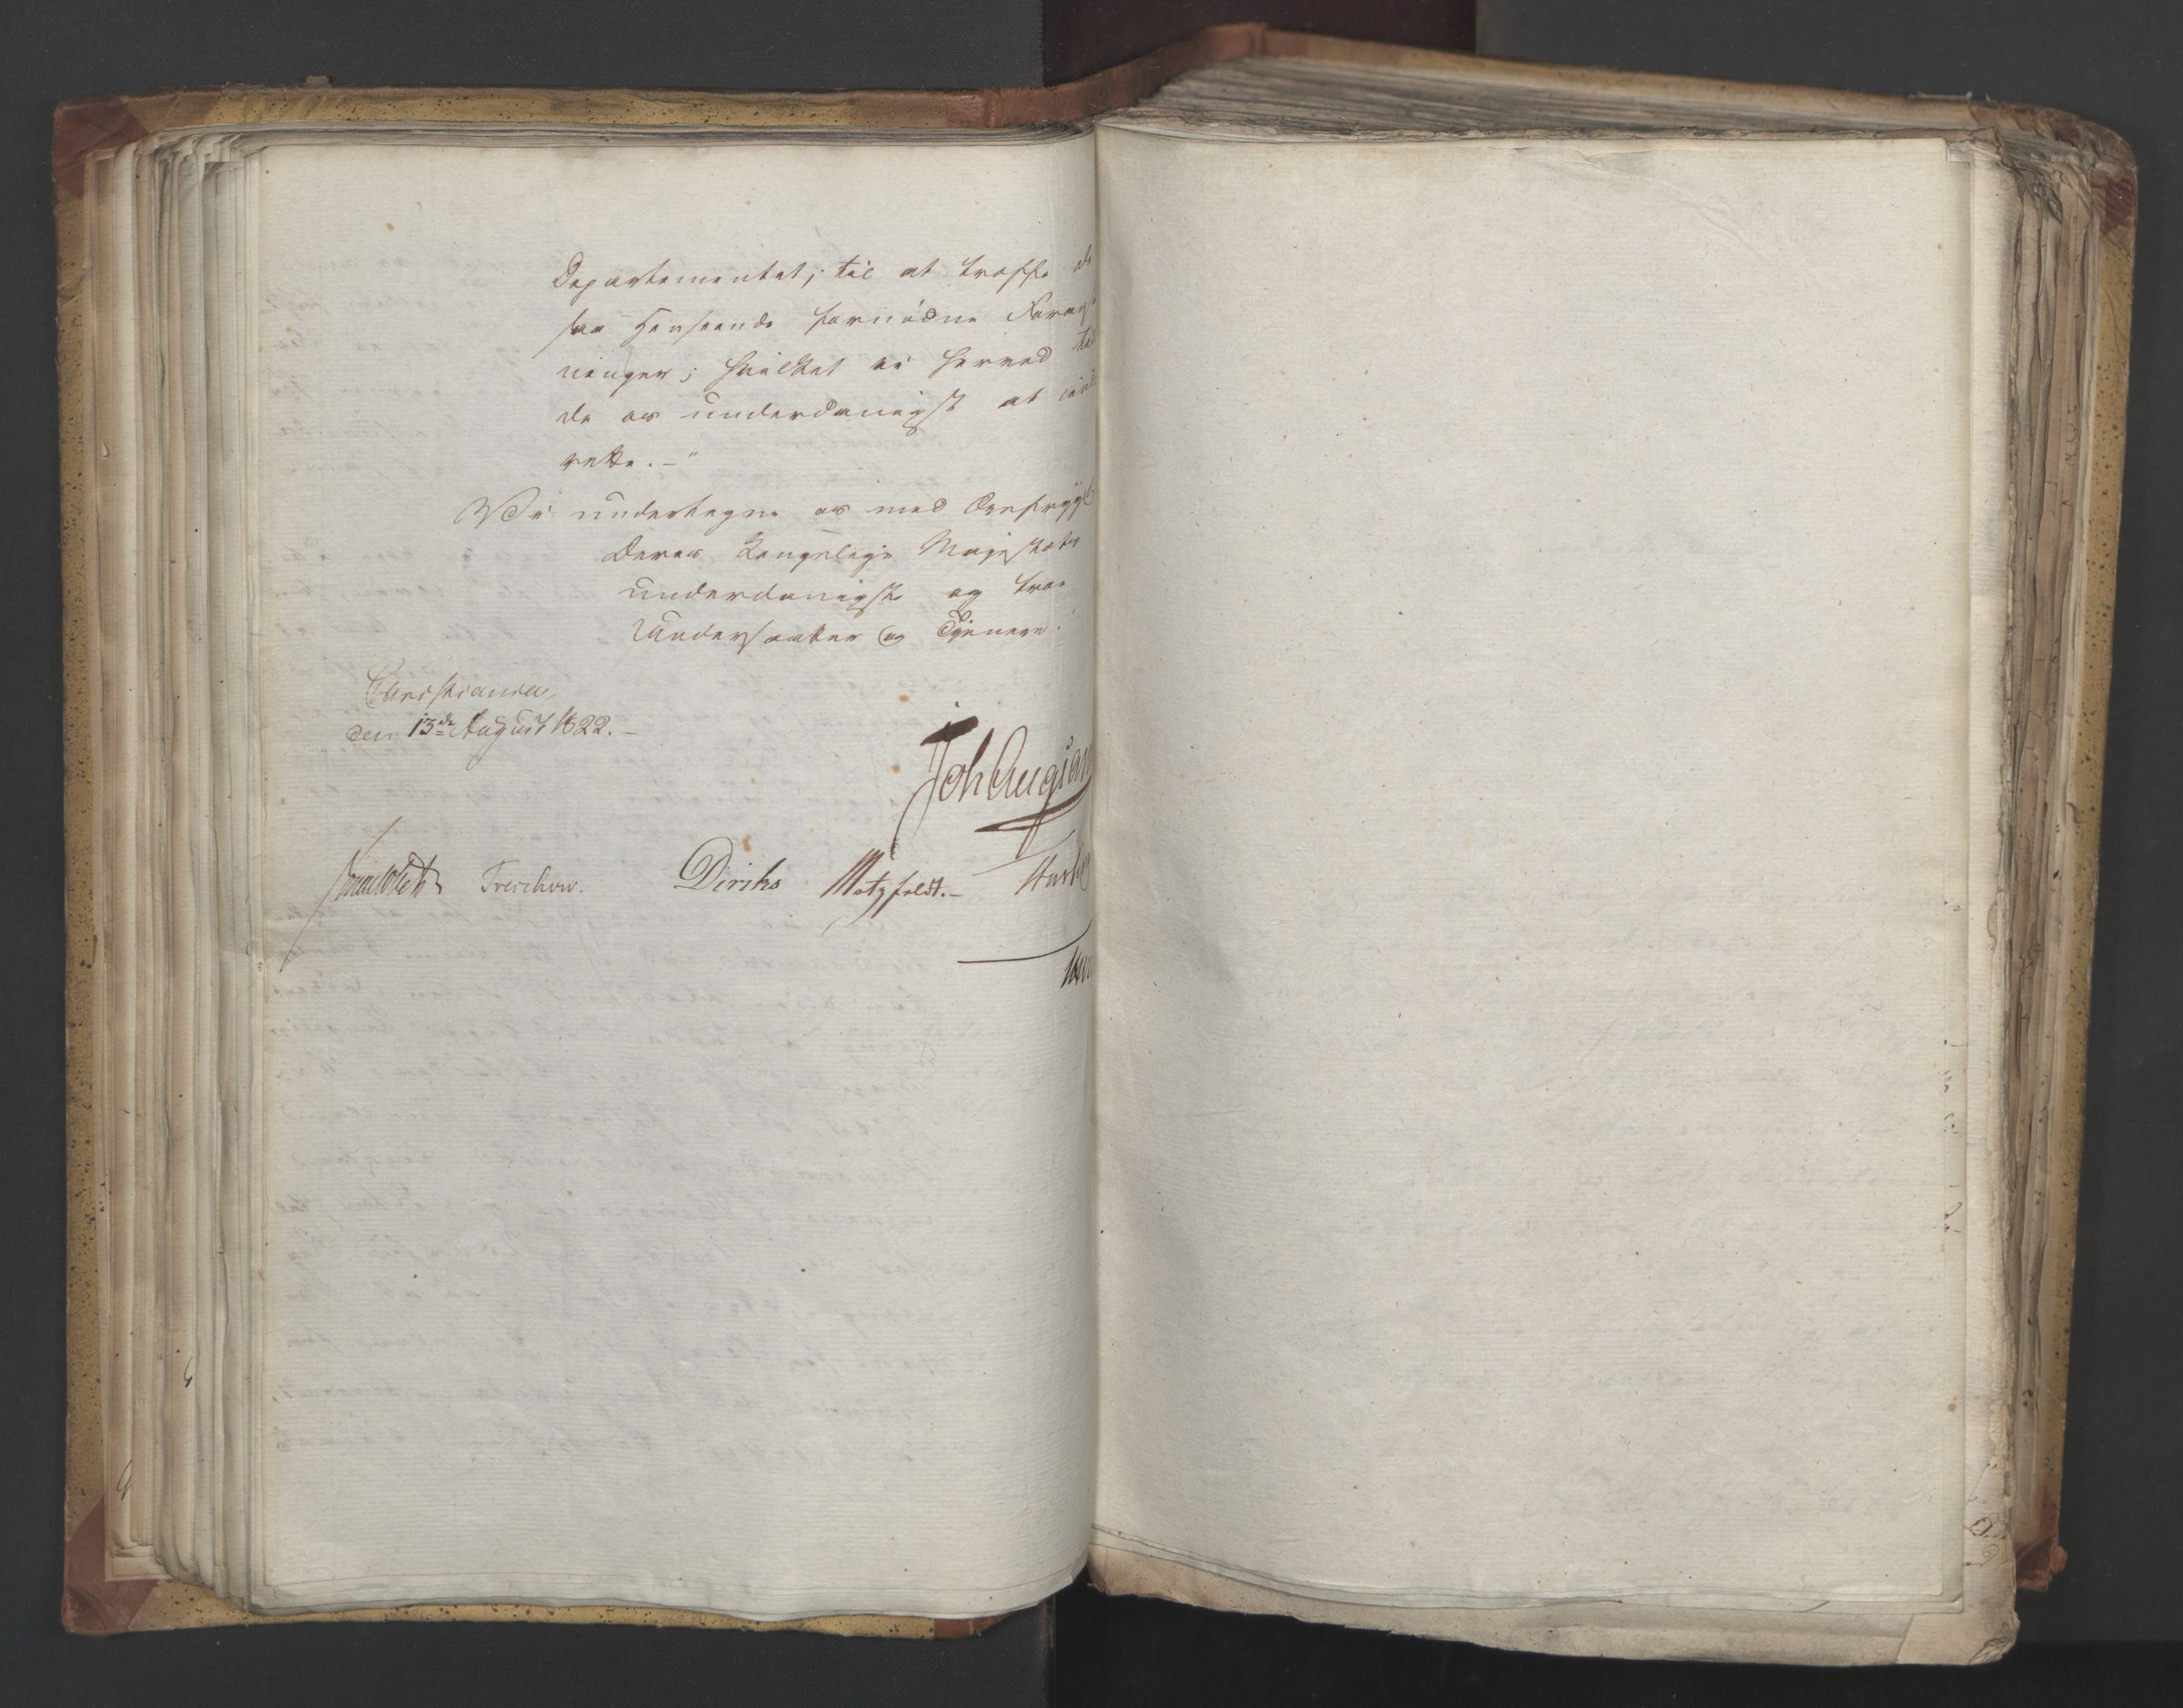 Departementet, til at træffe de
saa Henseende fornødne Foranst
ninger; hvilket vi herved til
de os underdanigst at ind
rette. —"
Vi undertegne os med Ærefrygt
Deres Kongelige Majestæts
underdanigste og troe
Undersaatter og Tjenere.
Christiania,
den 13de August 1822. —
Joh Aug
Treschow. Diriks Motzfeldt. —